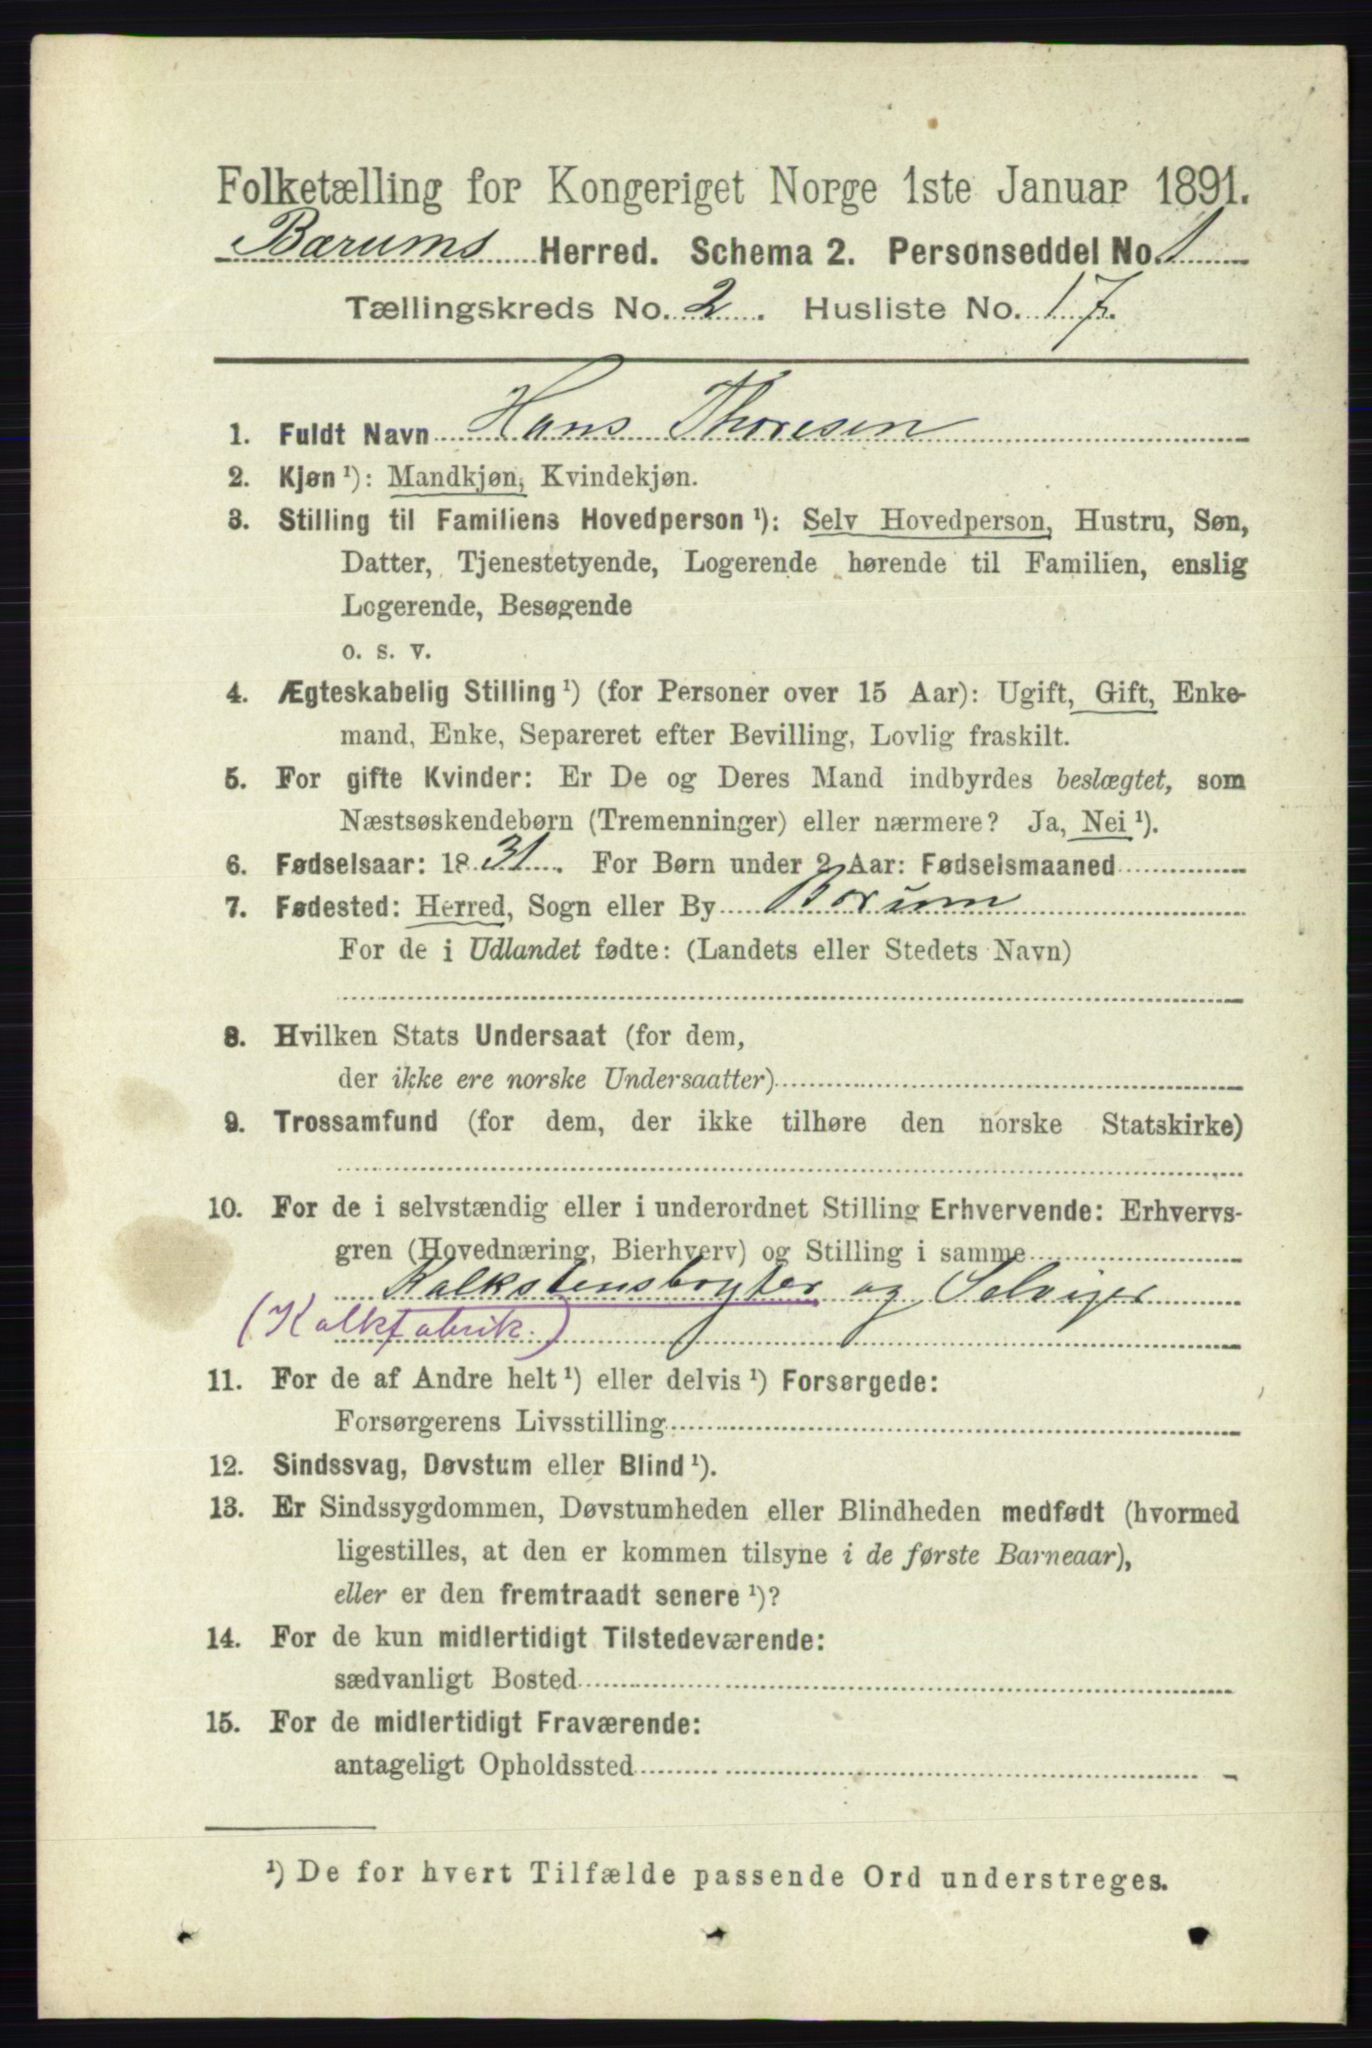 Folketælling for Kongeriget Norge 1ste Januar 1891.
Bærums Herred. Schema 2. Personseddel No. 1
Tællingskreds No. 2. Husliste No. 17.
1. Fuldt Navn Hans Thoresen
2. Kjøn ¹): Mandkjøn, Kvindekjøn.
3. Stilling til Familiens Hovedperson ¹): Selv Hovedperson, Hustru, Søn,
Datter, Tjenestetyende, Logerende hørende til Familien, enslig
Logerende, Besøgende
o. s. v.
4. Ægteskabelig Stilling ¹) (for Personer over 15 Aar): Ugift, Gift, Enke-
mand, Enke, Separeret efter Bevilling, Lovlig fraskilt.
5. For gifte Kvinder: Er De og Deres Mand indbyrdes beslægtet, som
Næstsøskendebørn (Tremenninger) eller nærmere? Ja, Nei ¹).
6. Fødselsaar: 1831. For Børn under 2 Aar: Fødselsmaaned
7. Fødested: Herred, Sogn eller By Børum
For de i Udlandet fødte: (Landets eller Stedets Navn)
8. Hvilken Stats Undersaat (for dem,
der ikke ere norske Undersaatter)
9. Trossamfund (for dem, der ikke tilhøre den norske Statskirke)
10. For de i selvstændig eller i underordnet Stilling Erhvervende: Erhvervs-
gren (Hovednæring, Bierhverv) og Stilling i samme
Kalkstensbryter og Selvejer
(Kalkfabrik.)
11. For de af Andre helt ¹) eller delvis ¹) Forsørgede:
Forsørgerens Livsstilling
12. Sindssvag, Døvstum eller Blind ¹).
13. Er Sindssygdommen, Døvstumheden eller Blindheden medfødt (hvormed
ligestilles, at den er kommen tilsyne i de første Barneaar),
eller er den fremtraadt senere ¹)?
14. For de kun midlertidigt Tilstedeværende:
sædvanligt Bosted
15. For de midlertidigt Fraværende:
antageligt Opholdssted
¹) De for hvert Tilfælde passende Ord understreges.